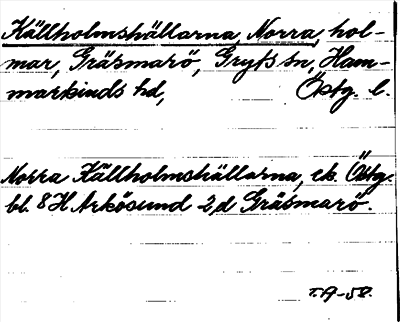 Källholmshällarna, Norra, hol-
mar, Gräsmarö, Gryts sn, Ham-
markinds hd, Östg. l.
Norra Källholmshällarna, ek. Östg.
bl. 8 H Arkösund 2,d Gräsmarö.
T.A-58.